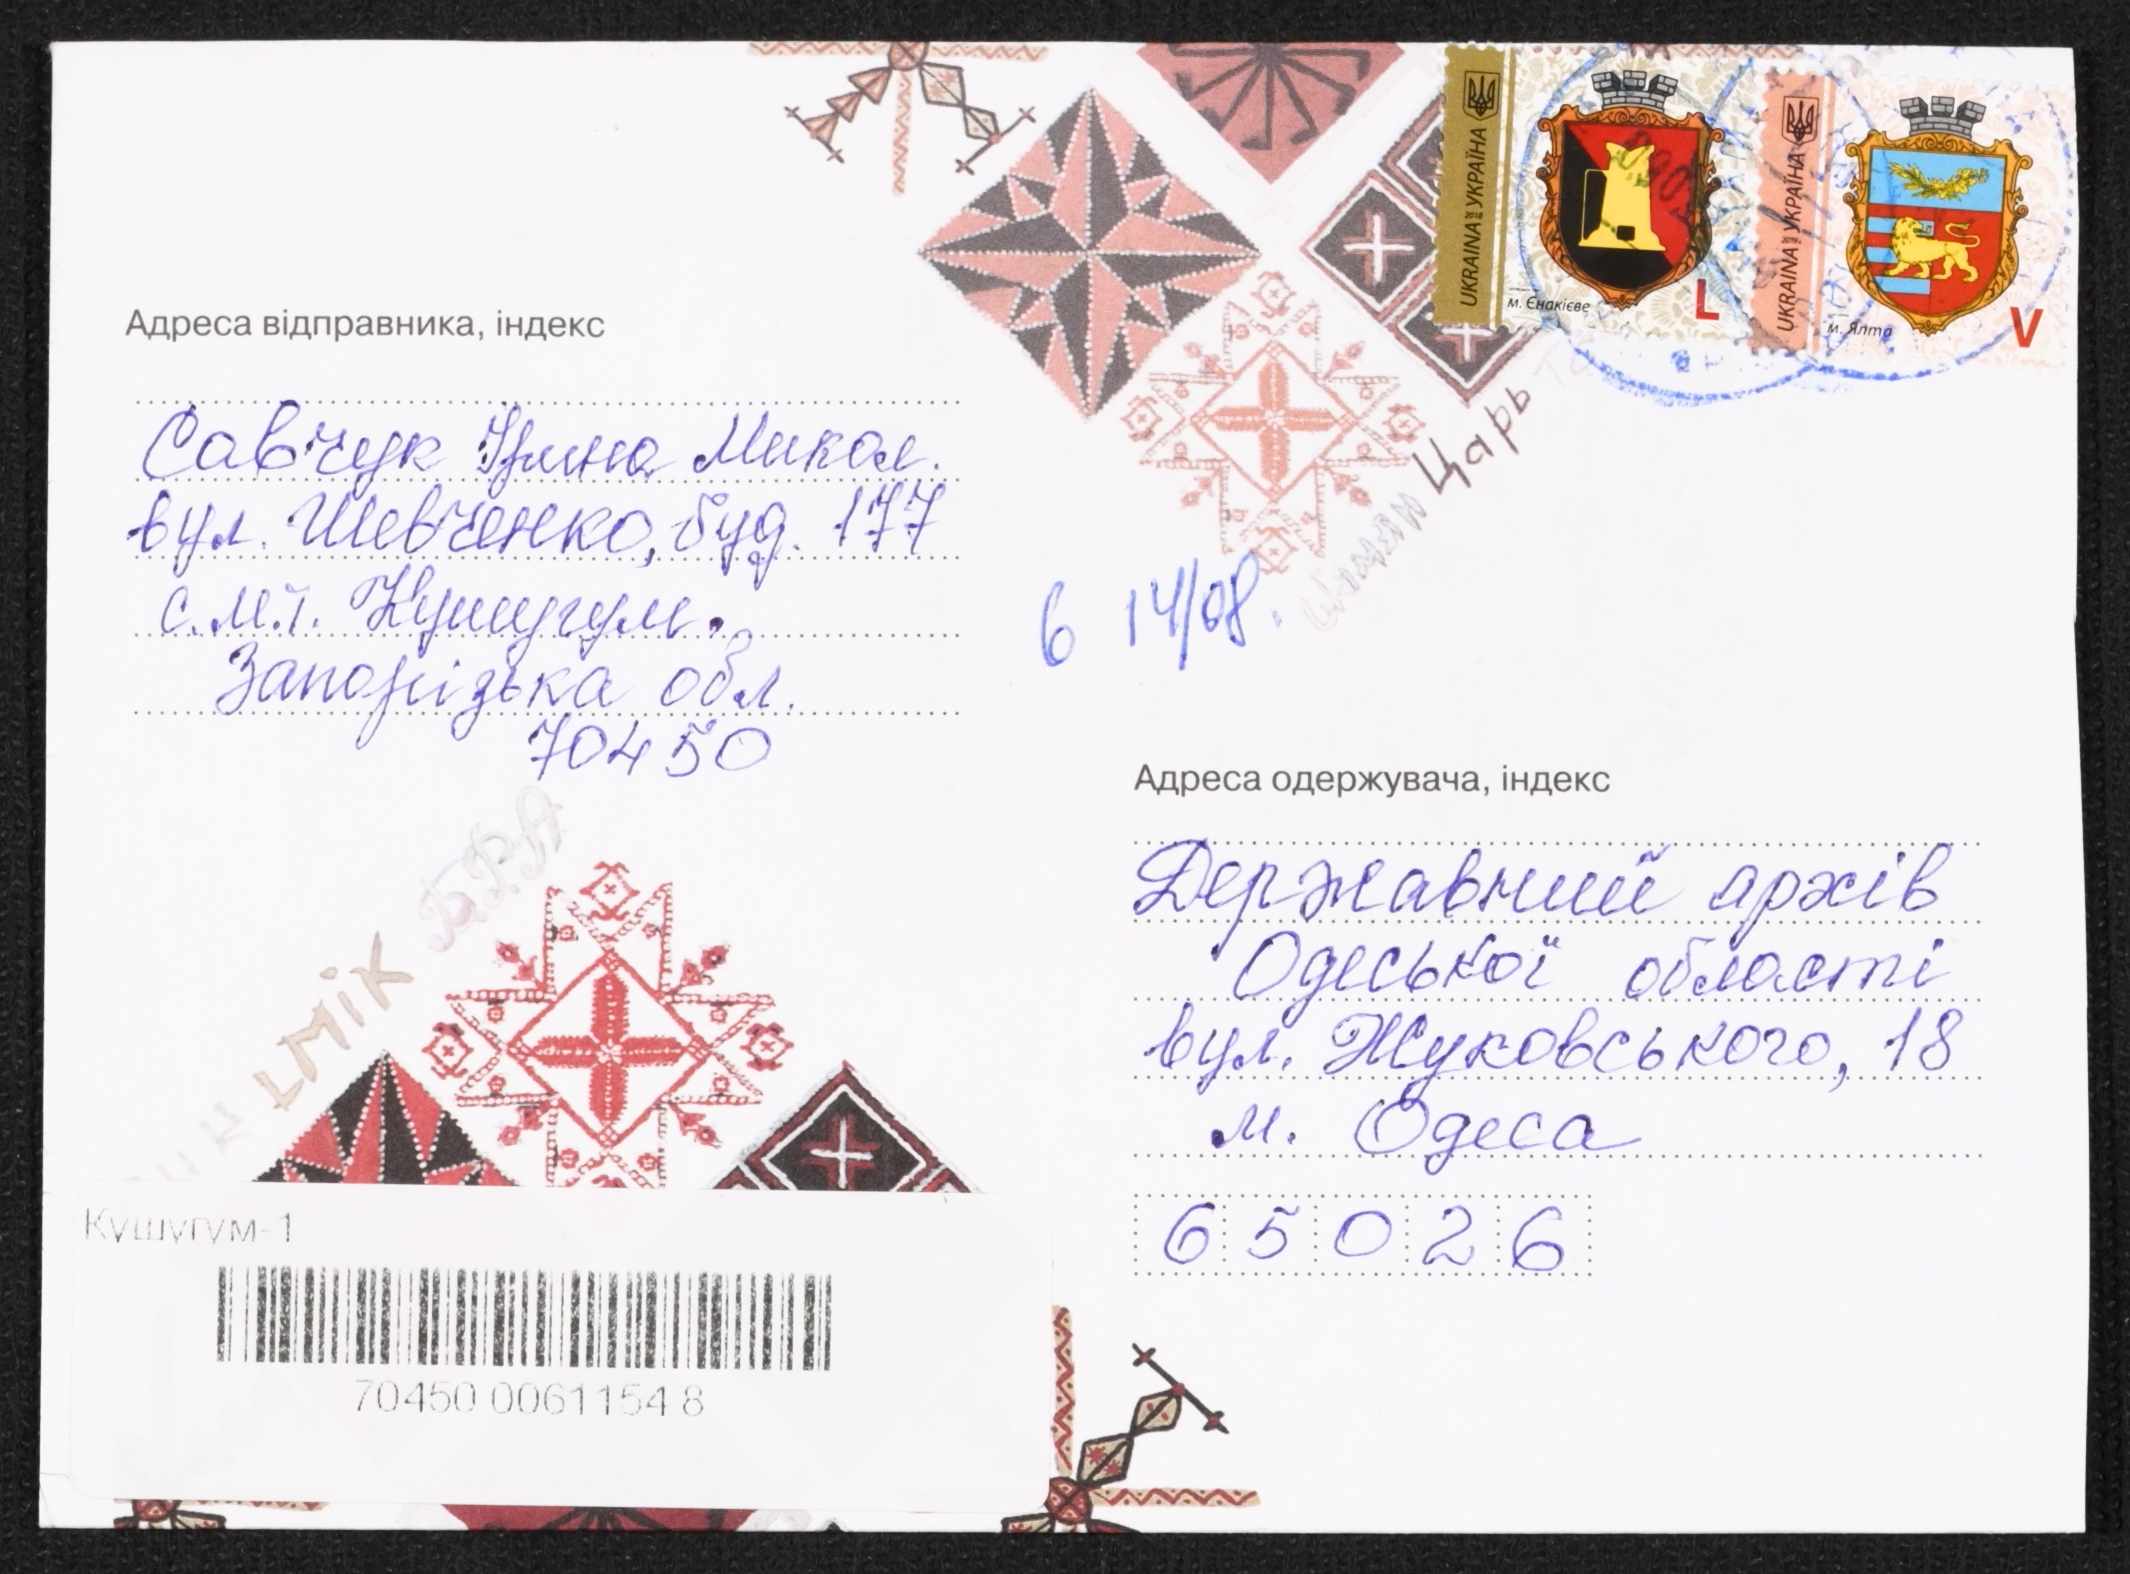 UKRAINA УКРАЇНА
м. Єнакієве
L
UKRAINA УКРАЇНА
м. Ялта
V
Адреса відправника, індекс
Савчук Ірина Микол.
вул. Шевченко, буд. 177
с.м.т. Кушугум.
Запорізька обл.
70450
Царь
6 14/08.
Адреса одержувача, індекс
Державний архів
Одеської області
вул. Жуковського, 18
м. Одеса
65026
Кушугум-1
70450 0061154 8